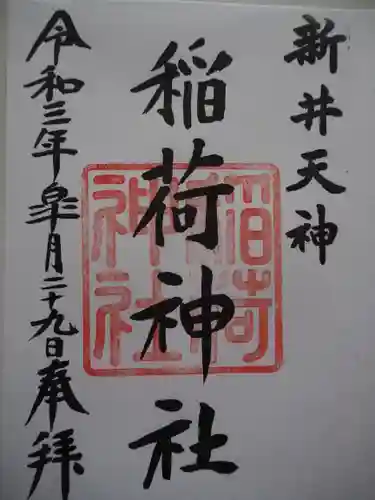 新井天神
稲荷神社
稲荷神社
令和三年皐月二十九日奉拝